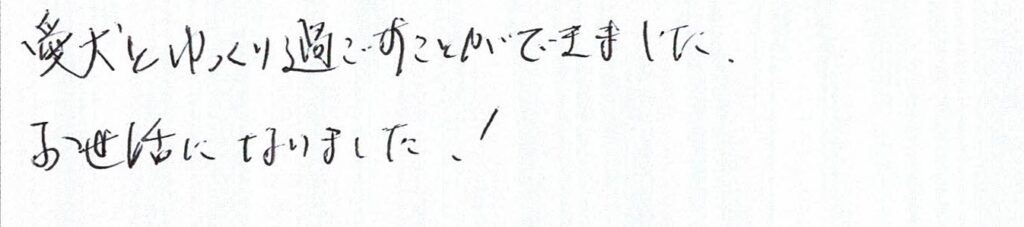 愛犬とゆっくり過ごすことができました.
お世話になりました.!